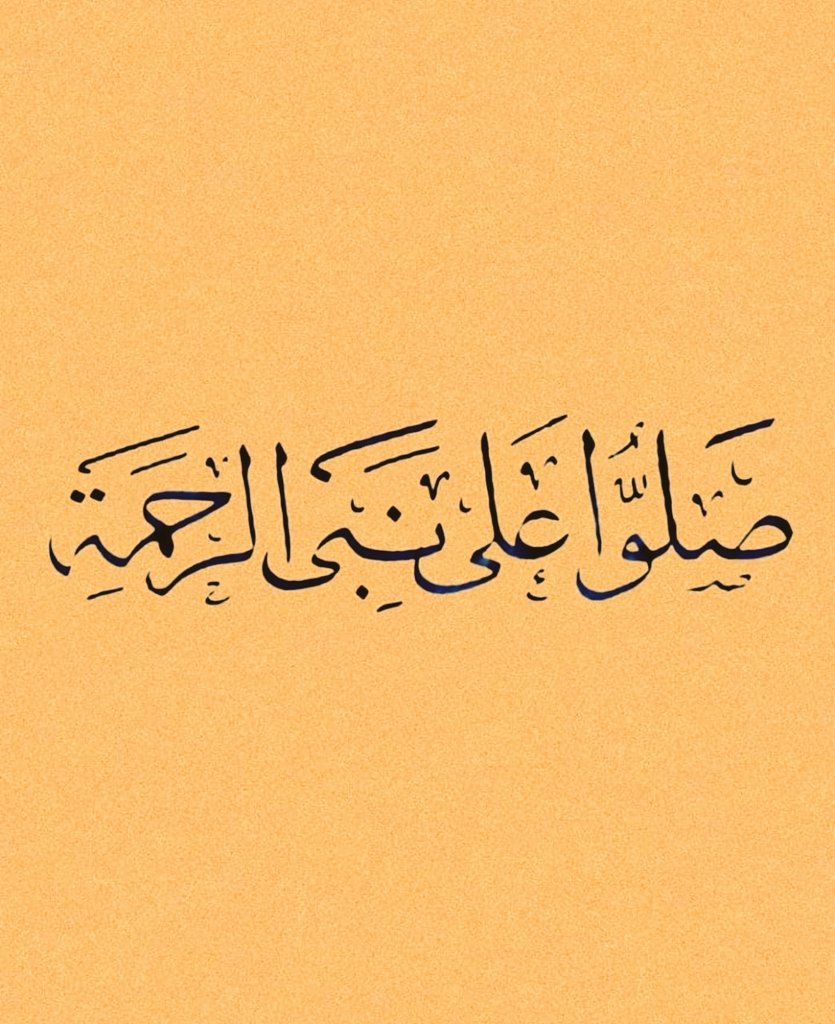 صَلُّوا عَلَى نَبِيِّ الرَّحْمَةِ